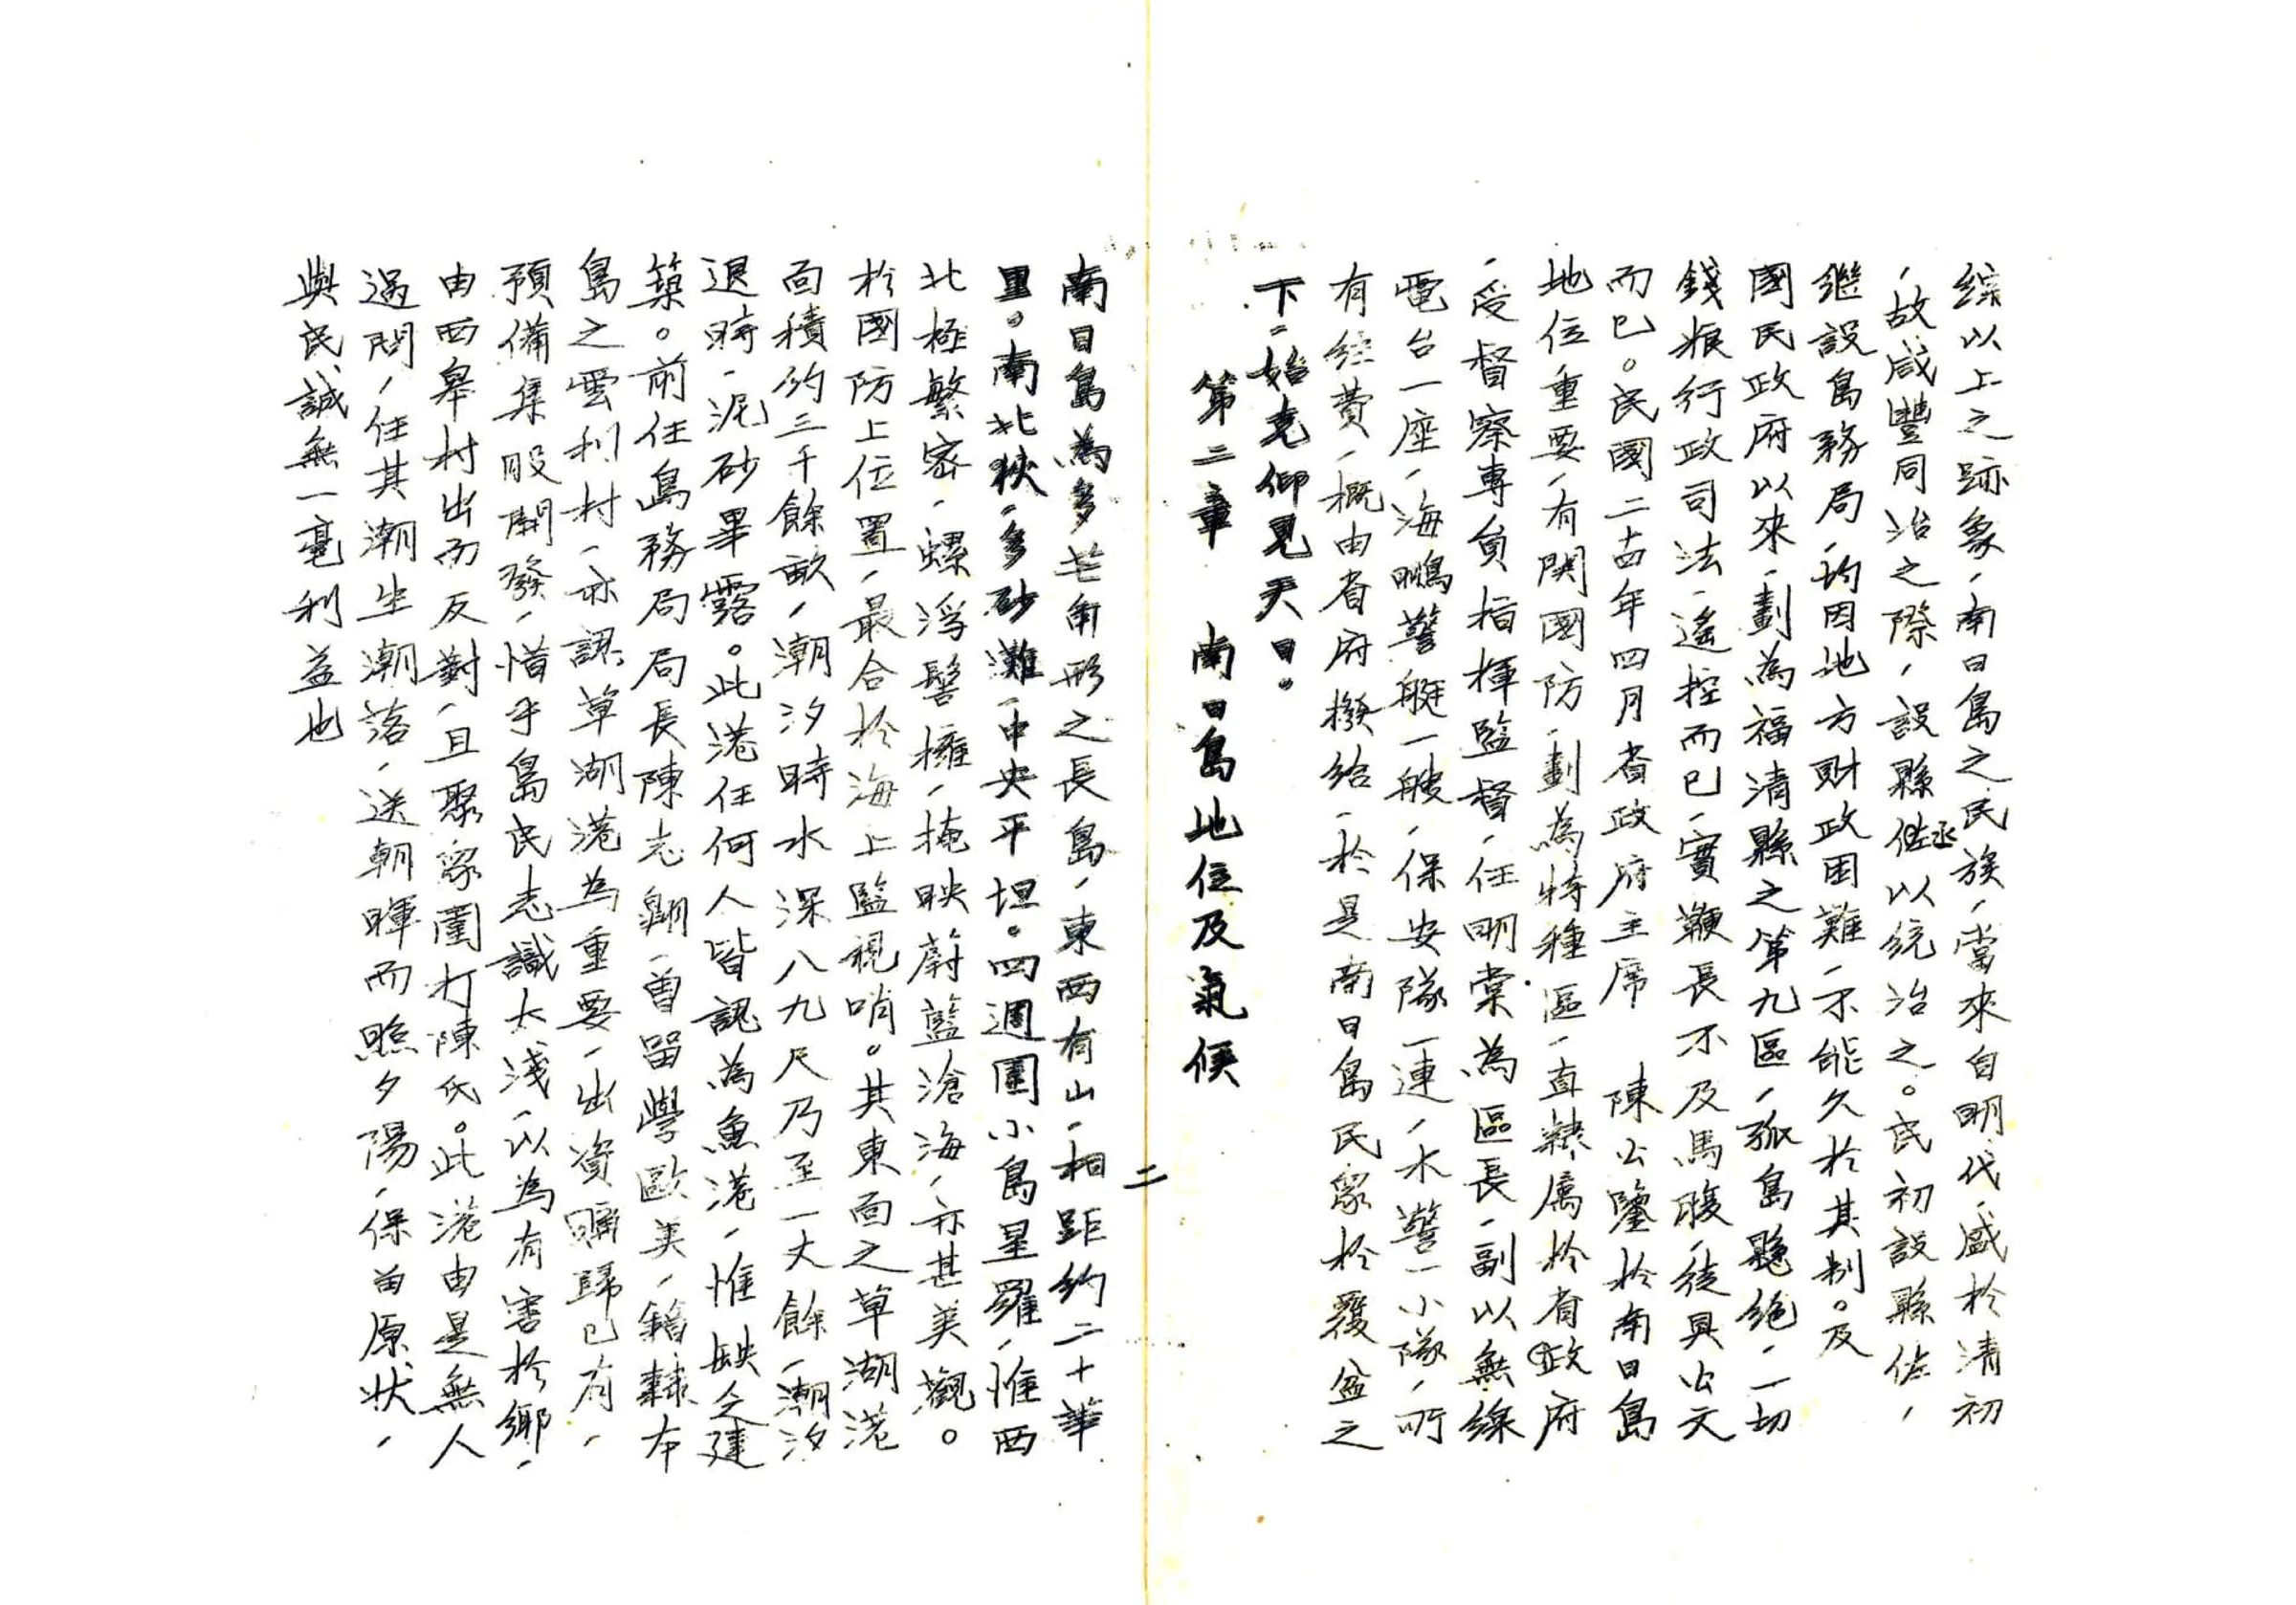 綜以上之跡象，南日島之民族，當來自明代，盛於清初
，故咸豐同治之際，設縣丞以統治之。民初設縣佐，
繼設島務局，均因地方財政困難，不能久於其制。及
國民政府以來，劃為福清縣之第九區，孤島懸絕，一切
錢粮行政司法，遙控而已，實鞭長不及馬腹，徒具公文
而已。民國二十四年四月省政府主席　陳公鑒於南日島
地位重要，有関國防，劃為特種區，直隸属於省政府
，受督察專員指揮監督，任明棠為區長，副以無線
電台一座，海鵬警艇一艘，保安隊一連，水警一小隊，所
有经費，概由省府撥给，於是南日島民眾於覆盆之
下，始克仰見天日。
第二章　南日島地位及氣候
二
南日島為多芒角形之長島，東西有山，相距約二十華
里。南北狹，多砂灘，中央平坦。四週圍小島星羅，惟西
北極繁密，螺浮髻擁，掩映蔚藍滄海，亦甚美觀。
於國防上位置，最合於海上監視哨。其東面之草湖港
面積約三千餘畝，潮汐時水深八九尺乃至一丈餘，潮汐
退時，泥砂畢露。此港任何人皆認為魚港，惟缺乏建
築。前任島務局局長陳志翺，曾留學歐美，籍隸本
島之雲利村，亦認草湖港為重要，出資購歸已有，
預備集股開發，惜乎島民志識太淺，以為有害於鄉，
由西皋村出而反對，且聚眾圍打陳氏。此港由是無人
過問，任其潮生潮落，送朝暉而照夕陽，保留原状，
與民誠無一毫利益也